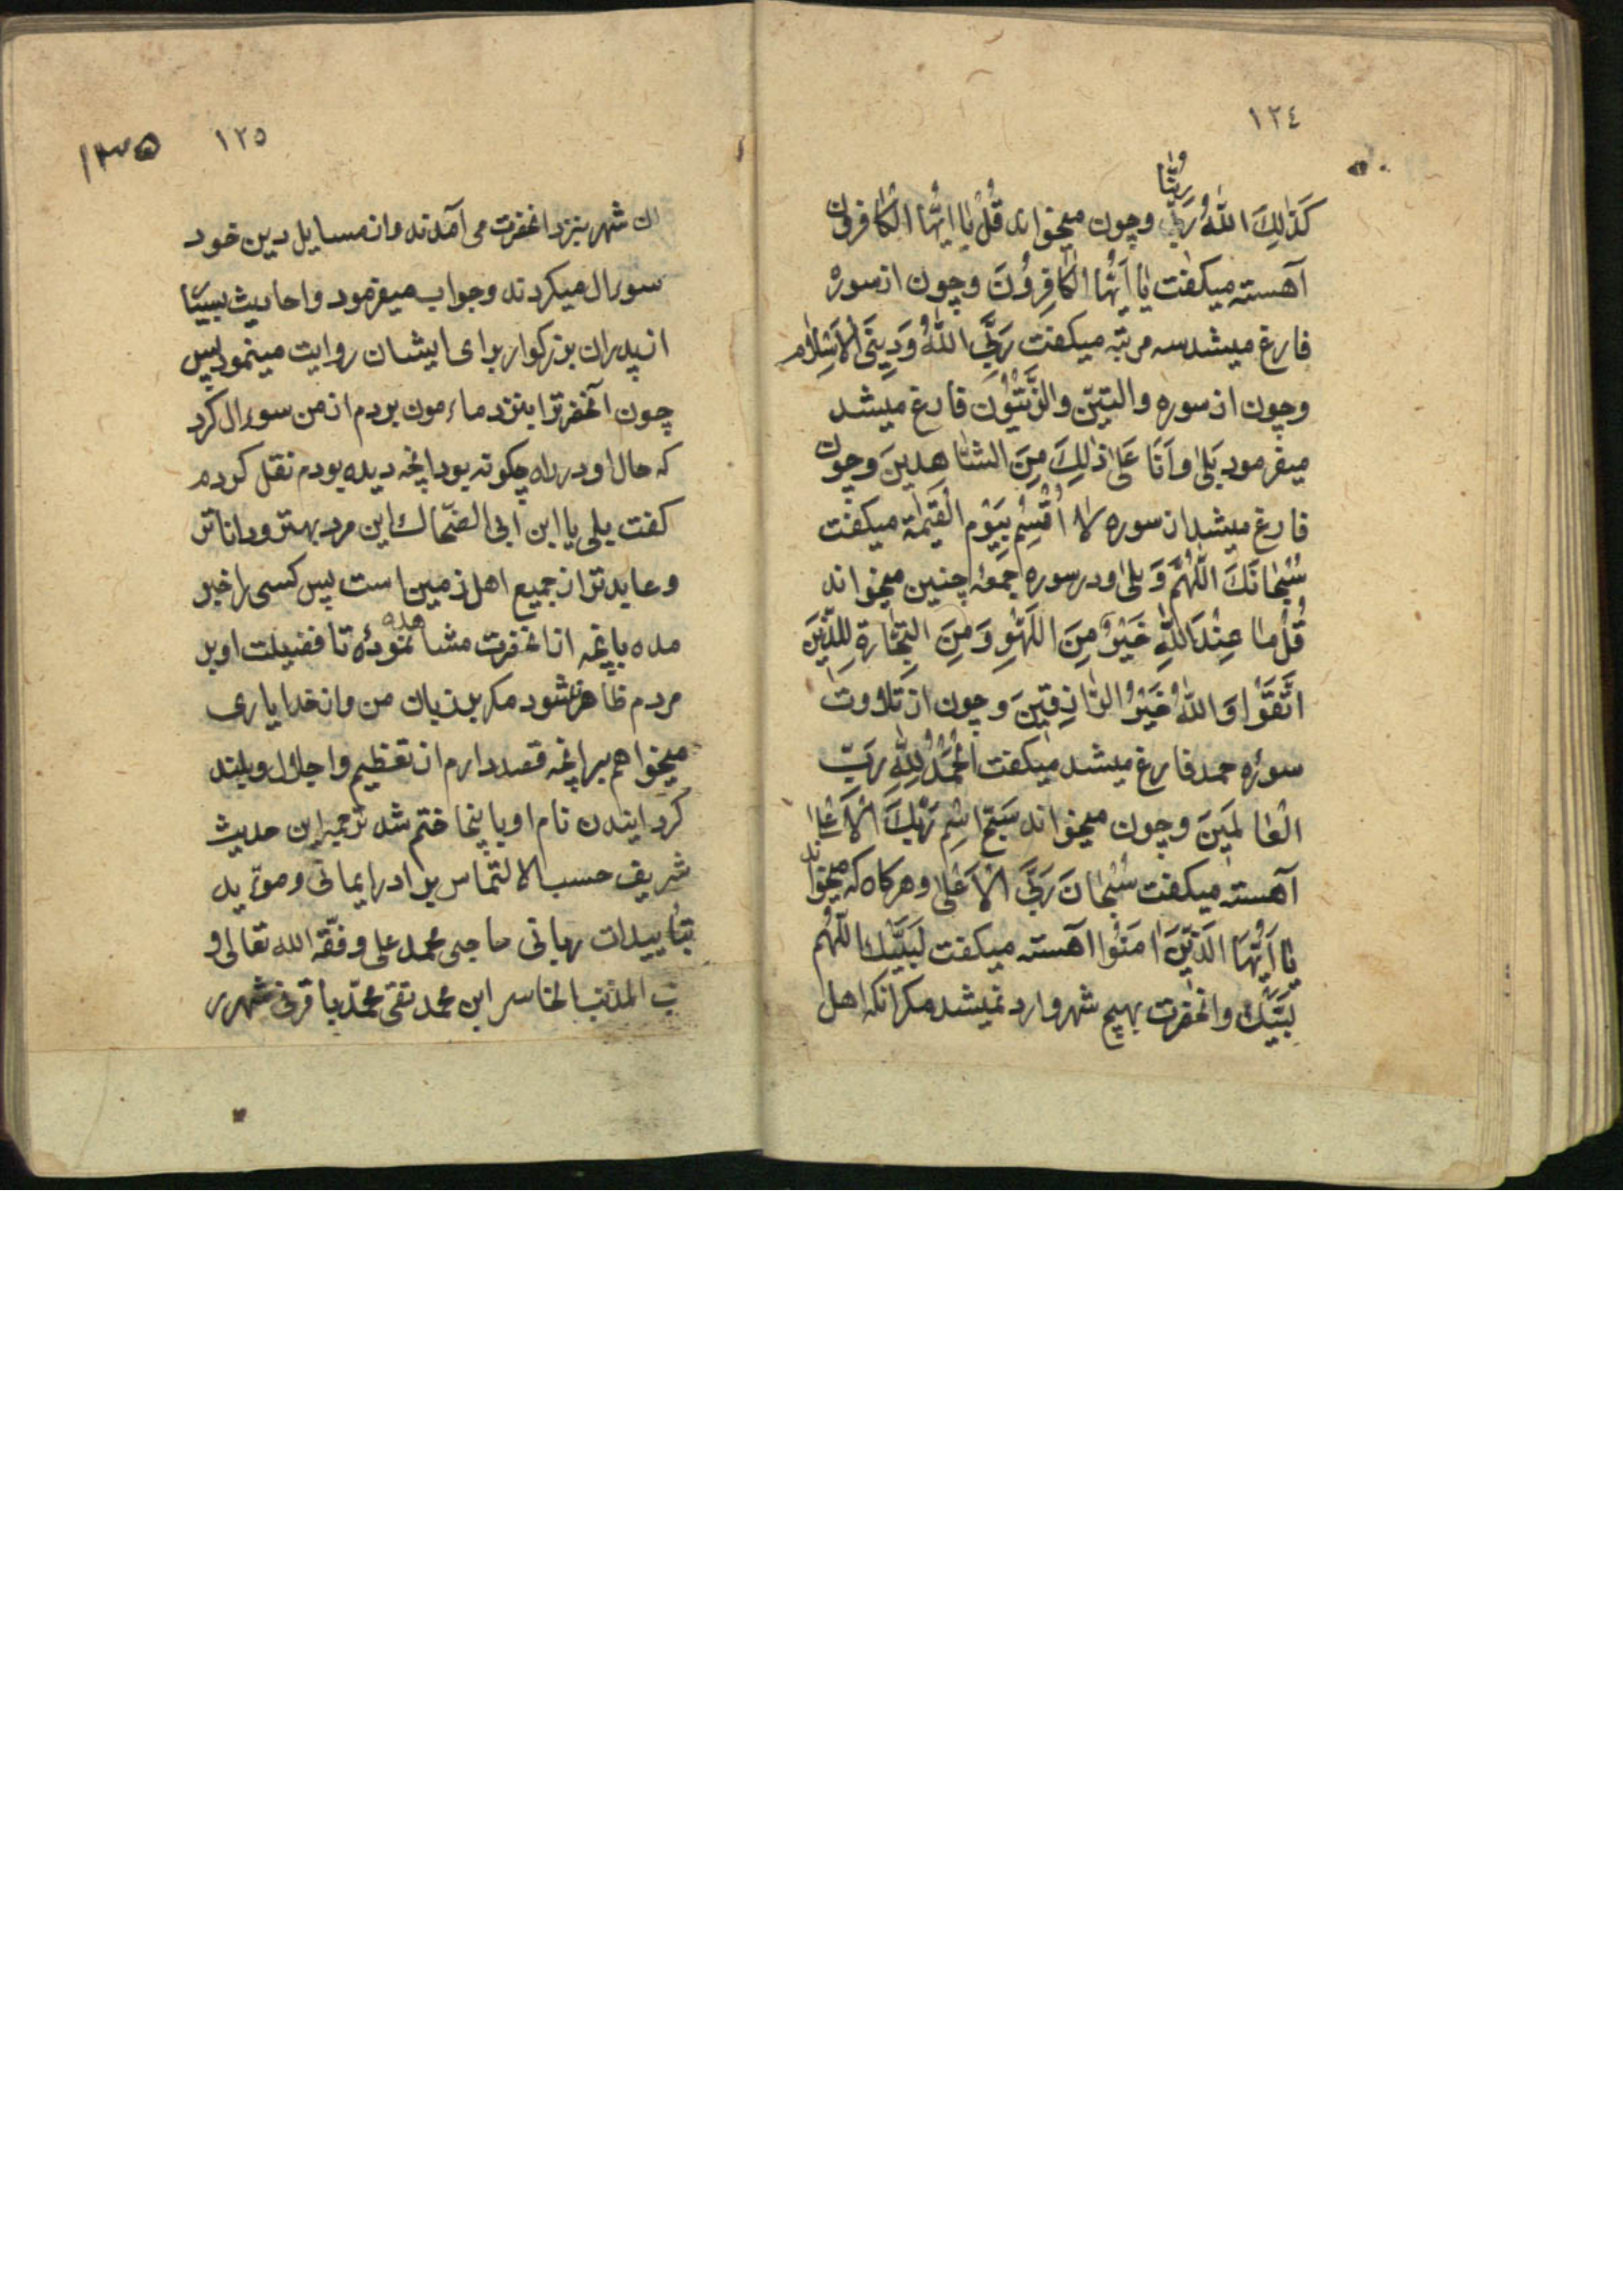 ١٢٤
وَ رَبُّنا
كَذٰلِكَ اللّٰهُ رَبّي وچون میخواند قُلْ یٰا اَیُّهَا الْكٰافِرون
آهسته میکفت یٰا اَیُّهَا الْكٰافِرُونَ وچون از سوره
فارغ میشد سه مرتبه میکفت رَبِّیَ اللّٰهُ وَدِینِیَ الْاِسْلٰام
وچون از سوره والتین والزَّیْتُون فارغ میشد
میفرمود بَلیٰ وَاَنَا عَلیٰ ذٰلِكَ مِنَ الشّٰاهِدِینَ وچون
فارغ میشد از سوره لٰا اُقْسِمُ بِیَوْمِ الْقِیٰمَة میکفت
سُبْحٰانَكَ اللّٰهُمَّ وَ بَلیٰ ودر سوره جمعه چنین میخواند
قُلْ مٰا عِنْدَ اللّٰهِ خَیْرٌ مِنَ اللَّهْوِ وَمِنَ التِّجٰارَةِ لِلَّذِینَ
اتَّقَوْا وَاللّٰهُ خَیْرُ الرّٰازِقِینَ وچون از تلاوت
سوره حمد فارغ میشد میکفت اَلْحَمْدُ لِلّٰهِ رَبِّ
الْعٰالَمِینَ وچون میخواند سَبِّحِ اسْمَ رَبِّكَ الْاَعْلیٰ
آهسته میکفت سُبْحٰانَ رَبِّیَ الْاَعْلیٰ وهرکاه که میخواند
یٰا اَیُّهَا الَّذِینَ اٰمَنُوا آهسته میکفت لَبَّیْكَ اللّٰهُمَّ
لَبَّیْكَ وانحضرت بهیچ شهر وارد نمیشد مکر انکه اهل
١٢٥ ١٢٥
ان شهر بنزد انحضرت می آمدند واز مسایل دین خود
سوءال میکردند وجواب میفرمود واحادیث بسیار
از پدران بزرکوار برای ایشان روایت مینمود پس
چون آنحضرترا بنزد ماءمون بردم از من سوءال کرد
که حال او در راه چکونه بود انچه دیده بودم نقل کردم
کفت بلی یا ابن ابی الضحاك این مرد بهتر وداناتر
وعابدتر از جمیع اهل زمین است پس کسی را خبر
مده بانچه از انحضرت مشاهده نمودهٔ تا فضیلت او بر
مردم ظاهر نشود مکر بر زبان من واز خدا یاری
میخواهم بر انچه قصد دارم از تعظیم واجلال وبلند
کردانیدن نام او باینجا ختم شد ترجمه این حدیث
شریف حسب الالتماس برادر ایمانی وموءید
بتأییدات ربانی حاجی محمد علی وفقه الله تعالی و
المذنب الخاسر ابن محمد تقی محمد باقر فی شهر